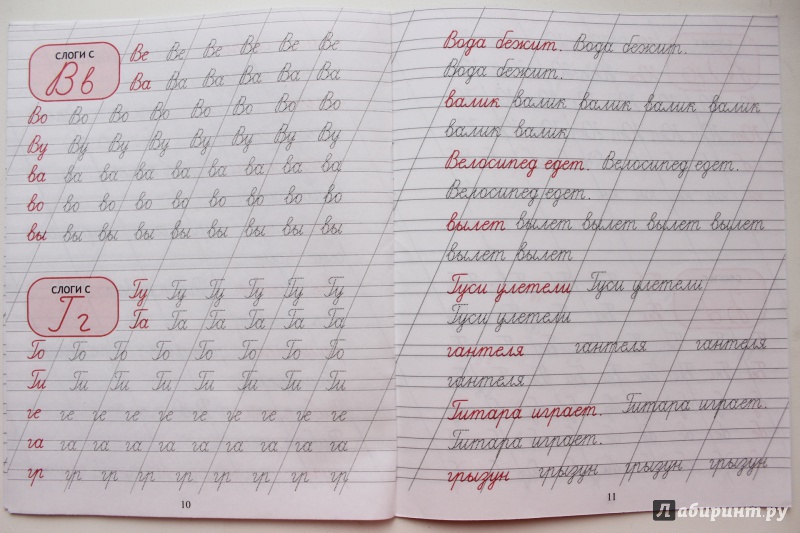 СЛОГИ С
Вв
Ве Ве Ве Ве Ве Ве
Ва Ва Ва Ва Ва Ва
Во Во Во Во Во Во Во Во
Ву Ву Ву Ву Ву Ву Ву Ву
ва ва ва ва ва ва ва ва ва
во во во во во во во во во
вы вы вы вы вы вы вы вы вы
СЛОГИ С
Гг
Гу Гу Гу Гу Гу Гу
Га Га Га Га Га Га
Го Го Го Го Го Го Го Го
Ги Ги Ги Ги Ги Ги Ги Ги
ге ге ге ге ге ге ге ге ге
га га га га га га га га га
гр гр гр гр гр гр гр гр гр
10
Вода бежит. Вода бежит.
Вода бежит.
валик валик валик валик валик
валик валик
Велосипед едет. Велосипед едет.
Велосипед едет.
вылет вылет вылет вылет вылет
вылет вылет
Гуси улетели Гуси улетели
Гуси улетели
гантеля гантеля гантеля
гантеля
Гитара играет. Гитара играет.
Гитара играет.
грызун грызун грызун грызун
11
Лабиринт.ру